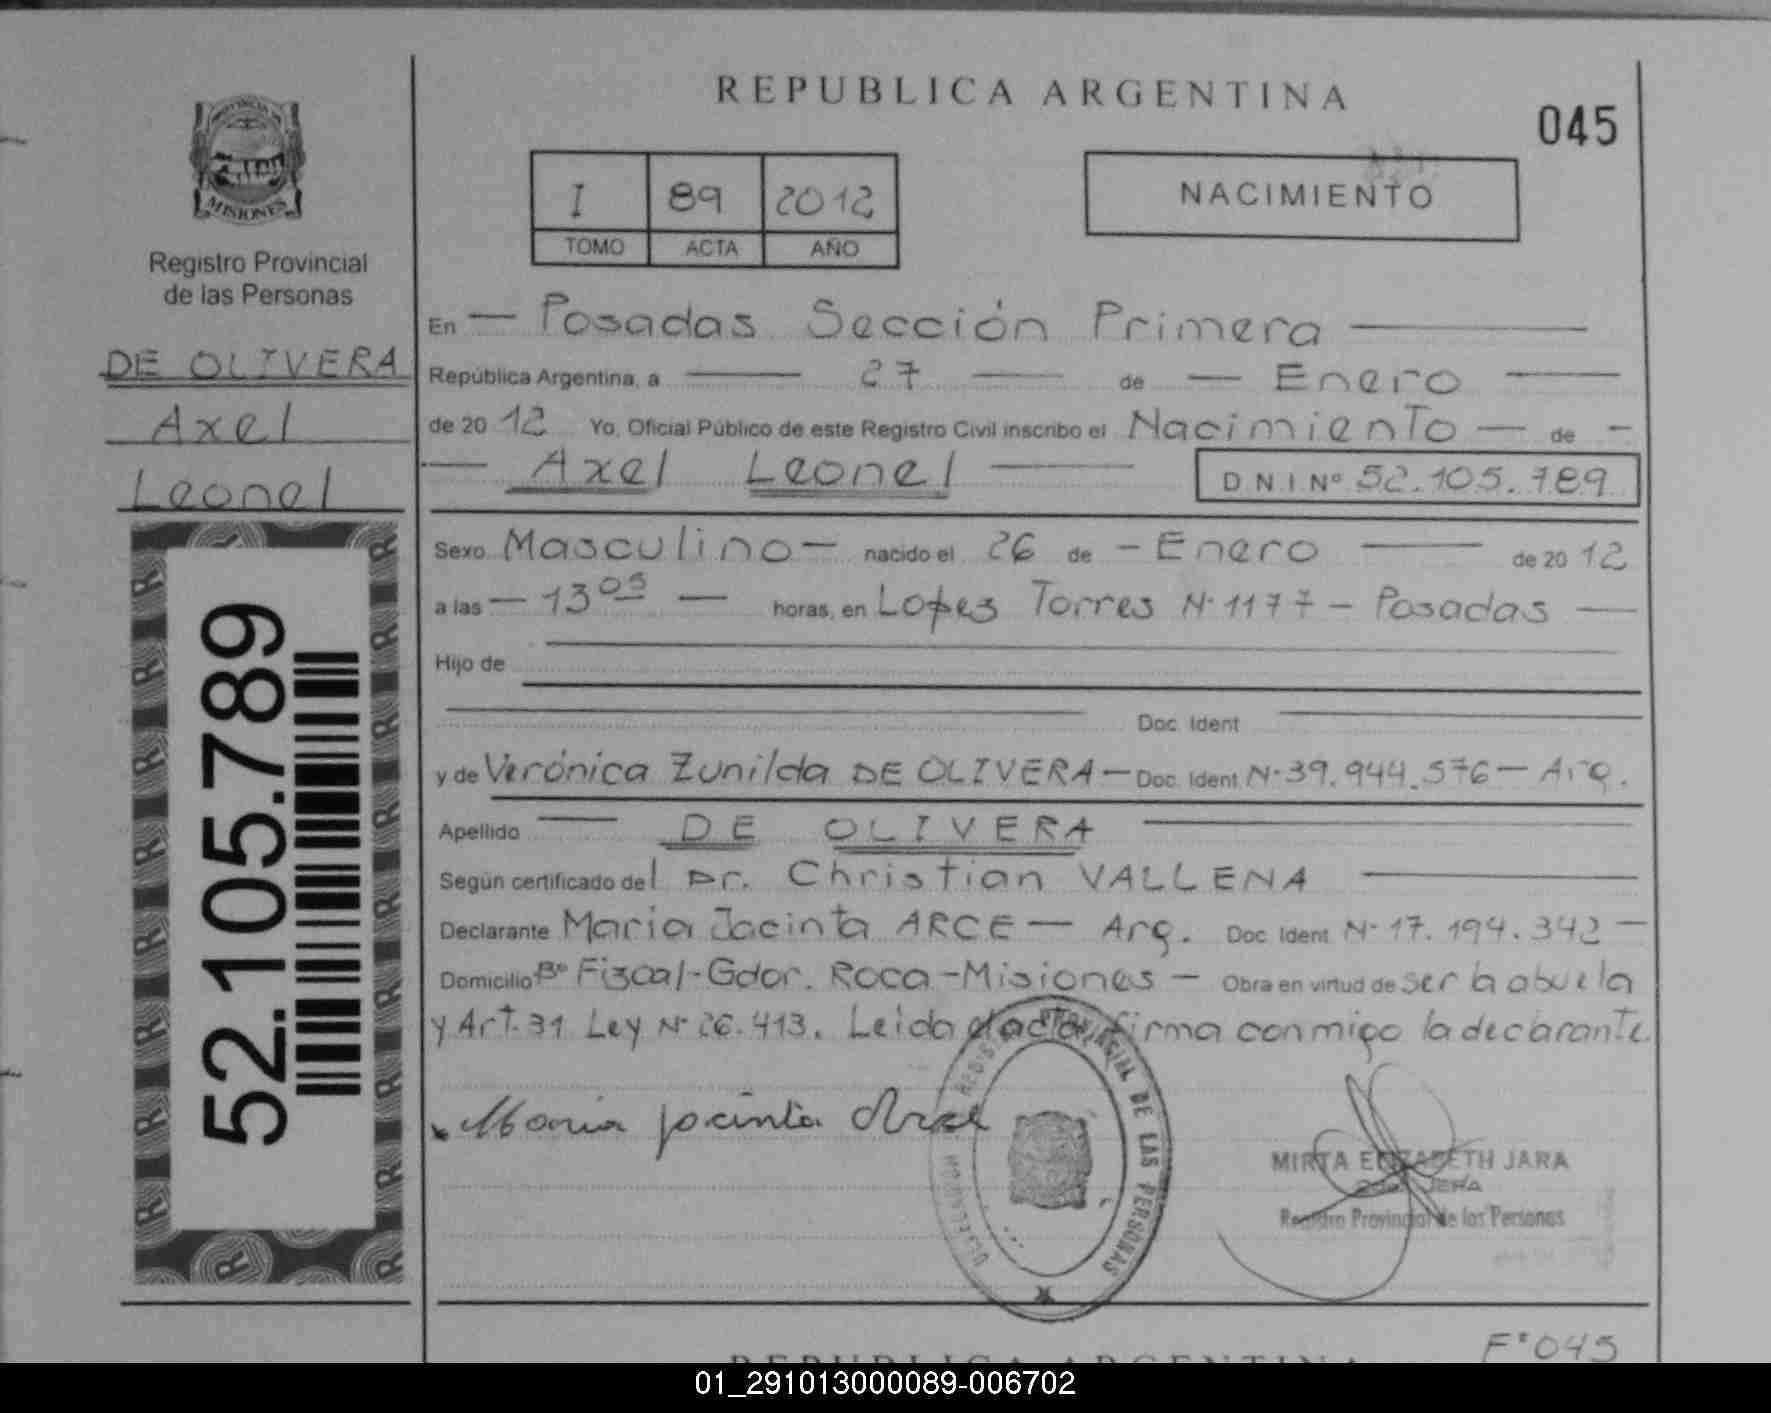 REPUBLICA ARGENTINA
045
PROVINCIA
MISIONES
Registro Provincial
de las Personas
DE OLIVERA
Axel
Leonel
52.105.789
I 89 2012
TOMO ACTA AÑO
NACIMIENTO
En — Posadas Sección Primera —
República Argentina, a — 27 — de — Enero —
de 20 12 Yo, Oficial Público de este Registro Civil inscribo el Nacimiento — de —
— Axel Leonel — D N I Nº 52.105.789
Sexo Masculino — nacido el 26 de — Enero — de 20 12
a las — 13 05 — horas, en Lopes Torres N· 1177 — Posadas —
Hijo de
Doc. Ident
y de Verónica Zunilda DE OLIVERA — Doc. Ident. N· 39.944.576 — Arg.
Apellido — DE OLIVERA —
Según certificado del Dr. Christian VALLENA —
Declarante Maria Jacinta ARCE — Arg. Doc Ident N· 17.194.342 —
Domicilio Bº Fiscal - Gdor. Roca - Misiones — Obra en virtud de ser la abuela
y Art. 31 Ley Nº 26.413. Leida el acta, firma conmigo la declarante.
Maria Jacinta Arce
REGISTRO PROVINCIAL DE LAS PERSONAS
MIRTA ELIZABETH JARA
Registro Provincial de las Personas
Fº 045
REPUBLICA ARGENTINA
01_291013000089-006702